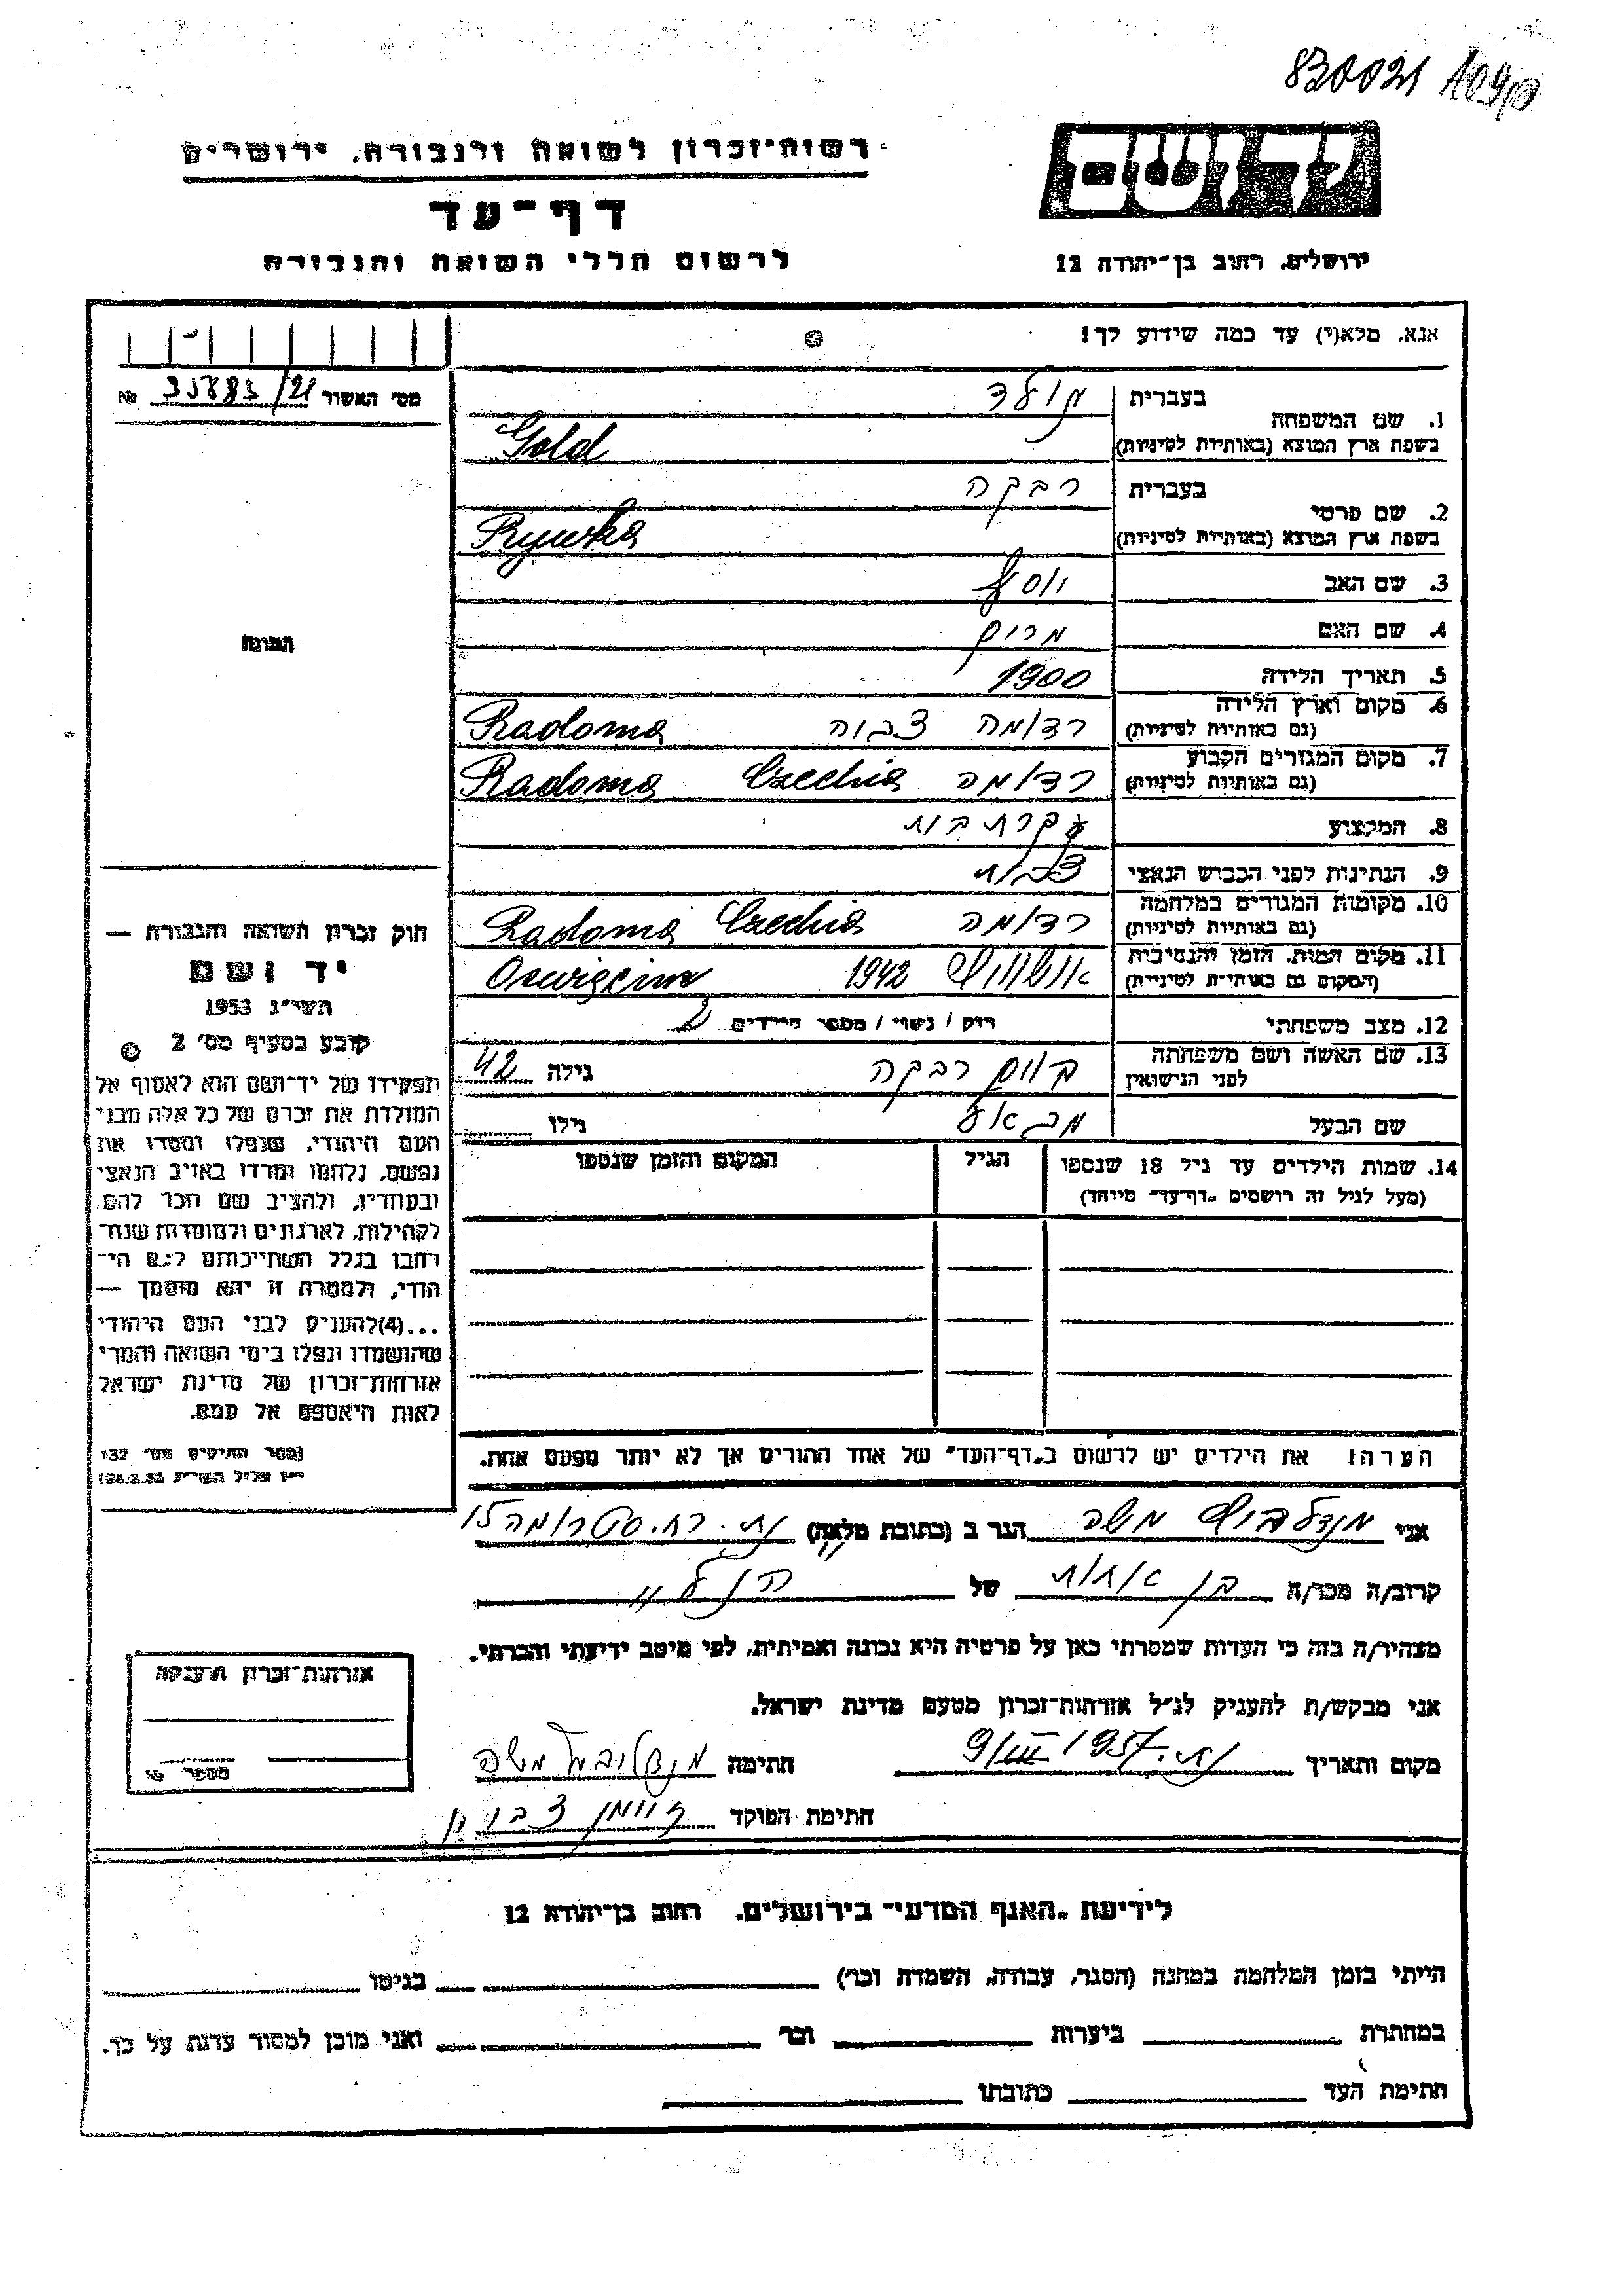 830021
רשות־זכרון לשואה ולגבורה, ירושלים
דף־עד
לרשום חללי השואה והגבורה
יד ושם
ירושלים, רחוב בן־יהודה 12
אנא, מלא(י) עד כמה שידוע לך!
מס׳ האשור 35883/21 №
1. שם המשפחה
בעברית גולד
בשפת ארץ המוצא (באותיות לטיניות) Gold
2. שם פרטי
בעברית רבקה
בשפת ארץ המוצא (באותיות לטיניות) Rywka
3. שם האב יוסף
4. שם האם מרים
5. תאריך הלידה 1900
6. מקום וארץ הלידה
(גם באותיות לטיניות) רדומה Radoma
7. מקום המגורים הקבוע
(גם באותיות לטיניות) רדומה Czechia Radoma
8. המקצוע עקרת בית
9. הנתינות לפני הכבוש הנאצי
10. מקומות המגורים במלחמה
(גם באותיות לטיניות) רדומה Czechia Radoma
11. מקום המות, הזמן והנסיבות
(המקום גם באותיות לטיניות) אושוויץ 1942 Oswięcim
12. מצב משפחתי רוק / נשוי / מספר הילדים 2
13. שם האשה ושם משפחתה
לפני הנישואין רבקה גילה 42
שם הבעל גילו
14. שמות הילדים עד גיל 18 שנספו
(מעל לגיל זה רושמים „דף־עד״ מיוחד)
הגיל
המקום והזמן שנספו
הערה: את הילדים יש לרשום ב„דף־העד״ של אחד ההורים אך לא יותר מפעם אחת.
התמונה
חוק זכרון השואה והגבורה —
יד ושם
תשי״ג 1953
קובע בסעיף מס׳ 2
תפקידו של יד־ושם הוא לאסוף אל
המולדת את זכרם של כל אלה מבני
העם היהודי, שנפלו ומסרו את
נפשם, נלחמו ומרדו באויב הנאצי
ובעוזריו, ולהציב שם וזכר להם
לקהילות, לארגונים ולמוסדות שנח־
רחבו בגלל השתייכותם לעם הי־
הודי, ולמטרה זו יהא מוסמך —
...(4)להעניק לבני העם היהודי
שהושמדו ונפלו בימי השואה והמרי
אזרחות־זכרון של מדינת ישראל
לאות היאספם אל עמם.
(ספר החוקים מס׳ 132
אני משה הגר ב (כתובת מלאה)
קרוב/ה מכר/ה בן אחות של הנ״ל
מצהיר/ה בזה כי העדות שמסרתי כאן על פרטיה היא נכונה ואמיתית, לפי מיטב ידיעתי והכרתי.
אני מבקש/ת להעניק לנ״ל אזרחות־זכרון מטעם מדינת ישראל.
מקום ותאריך 9/III 1957 חתימה משה
חתימת הפוקד
אזרחות־זכרון הוענקה
מספר
לידיעת „האגף המדעי״ בירושלים, רחוב בן־יהודה 12
הייתי בזמן המלחמה במחנה (הסגר, עבודה, השמדה וכו׳) בגיטו
במחתרת ביערות וכו׳ ואני מוכן למסור עדות על כך.
חתימת העד כתובתו